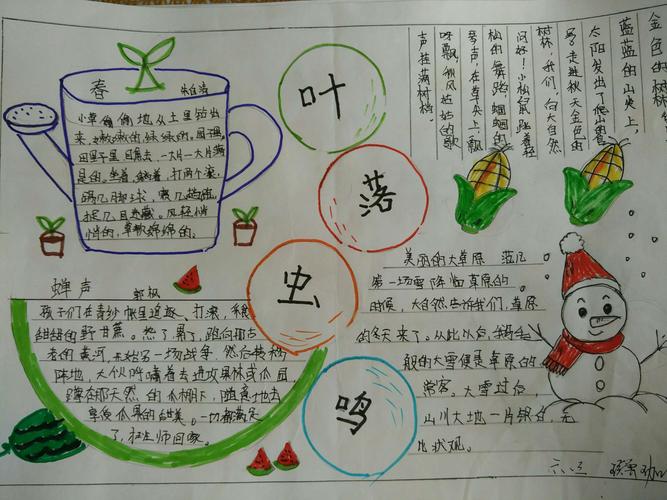 春 朱自清
小草偷偷地从土里钻出
来，嫩嫩的，绿绿的。园子里，
田野里，瞧去，一大片一大片满
是的。坐着，躺着，打两个滚，
踢几脚球，赛几趟跑，
捉几回迷藏。风轻悄
悄的，草软绵绵的。
叶
落
虫
鸣
金色的树林
蓝蓝的山尖上，
太阳发出了
走进秋天金色的
树林，我们，向大自然
问好！小松鼠踮着轻
松的舞蹈，蝈蝈的
琴声，在草尖上，飘
呀飘，秋风姑姑的歌
声挂满树梢。
蝉声 郭枫
孩子们在青纱帐里追逐、打滚，
甜甜的野甘蔗。热了累了，跑向那古
老的黄河，开始另一场战争，然后转移
阵地，大伙吵嚷着去进攻果林或瓜园，
蹲在那天然的瓜棚下，随意地去
享受瓜果的甜美。一切都满足
了，班师回家。
美丽的大草原 范儿
第一场雪降临草原的
时候，大自然告诉我们，草原
的冬天来了。从此以后，鹅毛
般的大雪便是草原的
常客。大雪过后，
山川大地一片银白，无
比状观。
六.八三